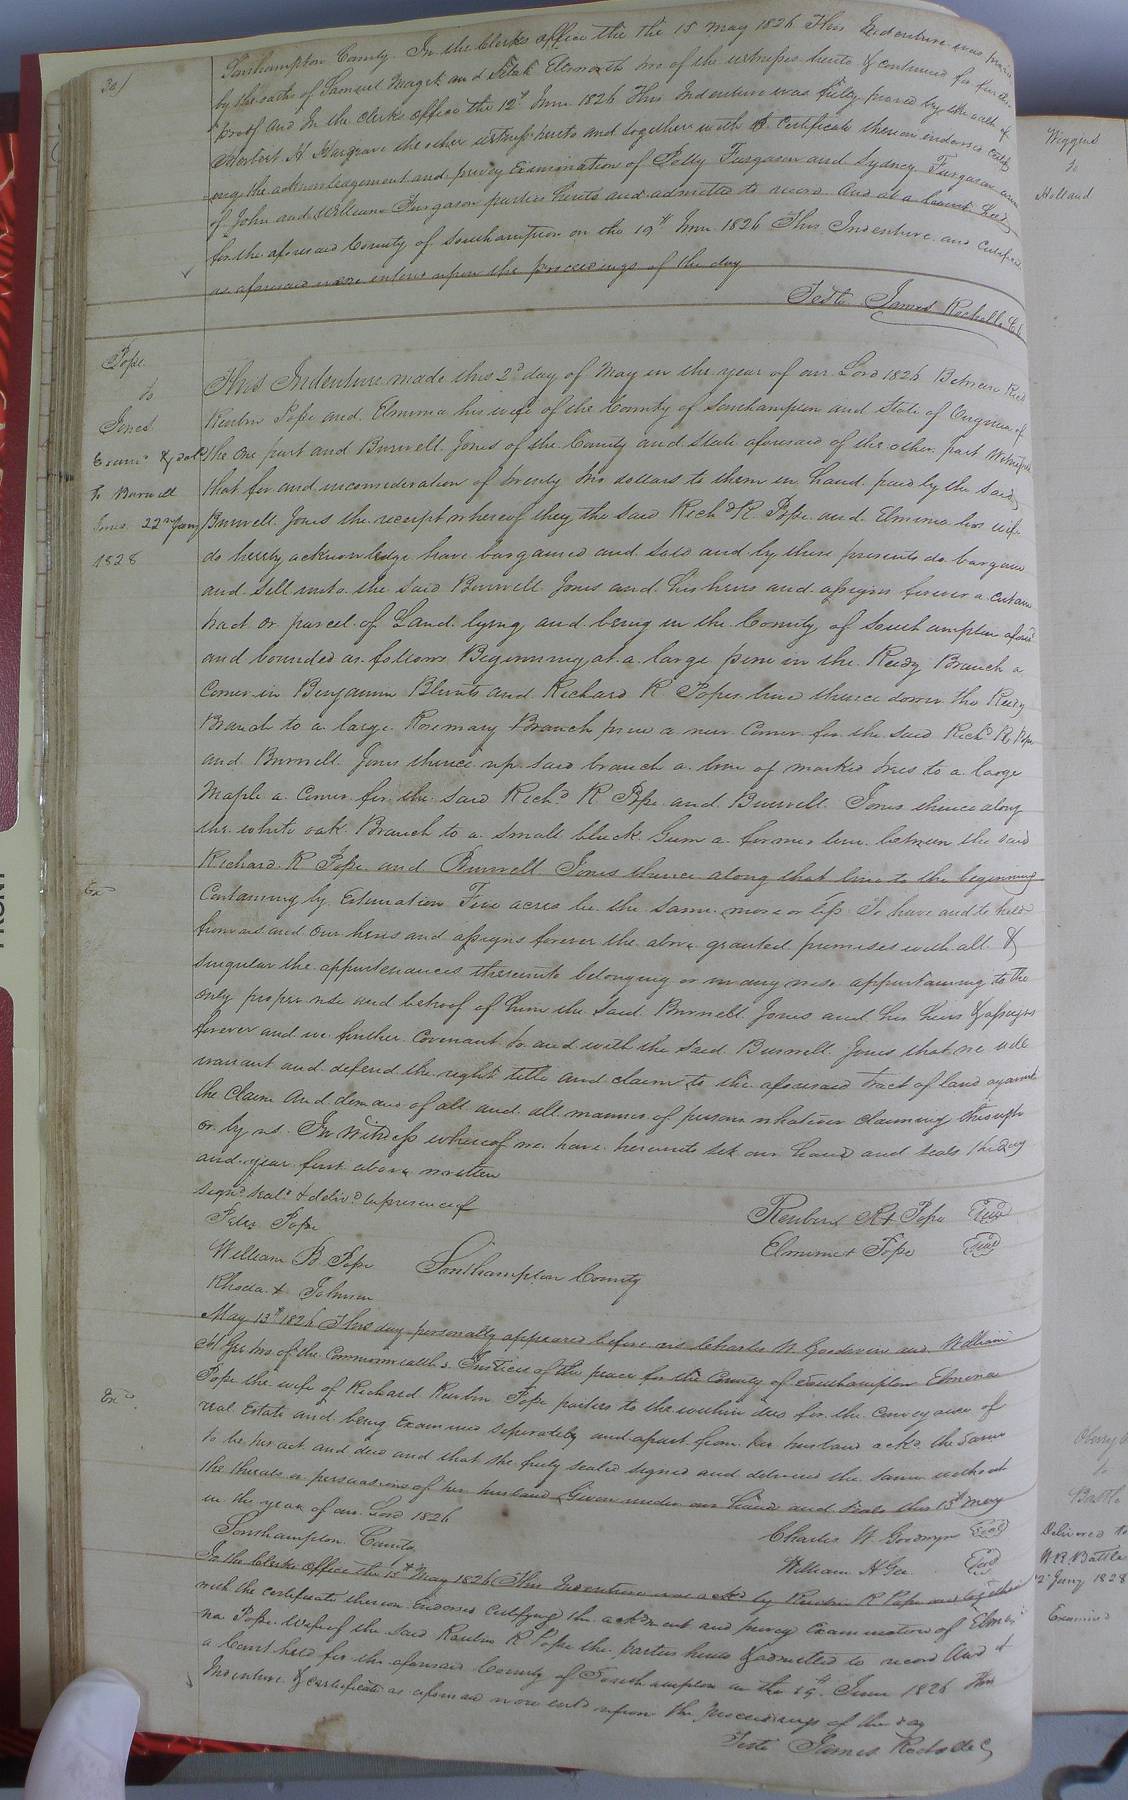 Southampton County. In the Clerks office the the 15 May 1826 This Indenture was proven
by the oaths of Samuel Magit and Elsworth two of the witnesses hereto & continued for further
proof And In the clerks office the 12th June 1826 This Indenture was fully proved by the oath of
Herbert H Hargrave the other witness hereto and together with the Certificate thereon endorsed certify
ing the acknowledgement and privey Examination of Polly Furgason and Sydney Furgason
of John and William Furgason parties hereto and admitted to record. And at a Court held
for the aforesaid County of Southampton on the 19th June 1826 This Indenture and Certificate
as aforesaid were entered upon the proceedings of the day
Teste James Rochelle
Pope
to
Jones
Exam'd & del'd
to Burwell
Jones 22nd Jany
1828
This Indenture made this 2d day of May in the year of our Lord 1826 Between Rich'd
Reubin Pope and Elmina his wife of the County of Southampton and State of Virginia of
the one part and Burwell Jones of the County and State aforesaid of the other part Witnesseth
that for and inconsideration of twenty two dollars to them in hand paid by the said
Burwell Jones the receipt whereof they the said Rich'd R Pope and Elmina his wife
do hereby acknowledge have bargained and sold and by these presents do bargain
and sell unto the said Burwell Jones and his heirs and assigns forever a certain
tract or parcel of Land lying and being in the County of Southampton afores'd
and bounded as follows Beginning at a large pine in the Reedy Branch a
Corner in Benjamin Blunts and Richard R Popes line thence down the Reedy
Branch to a large Rosemary Branch pine a new Corner for the said Rich'd R Pope
and Burwell Jones thence up said branch a line of marked trees to a large
Maple a Corner for the said Rich'd R Pope and Burwell Jones thence along
the white oak Branch to a small black Gum a former line between the said
Richard R Pope and Burwell Jones thence along that line to the beginning
Containing by Estimation Five acres be the same more or less To have and to hold
from us and our heirs and assigns forever the above granted premises with all &
singular the appurtenances thereunto belonging or in any wise appertaining to the
only proper use and behoof of him the said Burwell Jones and his heirs & assigns
forever and we further Covenant to and with the said Burwell Jones that we will
warrant and defend the right title and claim to the aforesaid tract of land against
the claim and demand of all and all manner of persons whatever claiming through
or by us. In Witness whereof we have hereunto set our hands and seals the day
and year first above written
Sign'd Seal'd & deliv'd in presence of
Reubin R Pope Seal
Pope
Elmina + Pope Seal
William B. Pope
Rhoda + Johnson
Southampton County
May 13th 1826 This day personally appeared before us Charles W Goodwin and William
H Gee two of the Commonwealths Justices of the peace for the County of Southampton Elmina
Pope the wife of Richard Reubin Pope parties to the within deed for the conveyance of
real Estate and being Examined seperately and apart from her husband ack'd the same
to be her act and deed and that she freely sealed signed and delivered the same without
the threats or persuasions of her husband Given under our hands and seals this 13th May
in the year of our Lord 1826
Charles W. Goodwyn Seal
William H Gee Seal
Southampton County
In the Clerks Office the 15th May 1826 This Indenture was ack'd by Reubin R Pope and together
with the certificate thereon Endorsed Certifying the ackment and privey Examination of Elmi
na Pope wife of the said Reubin R Pope the parties hereto & admitted to record And at
a Court held for the aforesaid County of Southampton on the 19th June 1826 This
Indenture & certificate as aforesaid were ent'd upon the proceedings of the day
Teste James Rochelle
Wiggins
to
Holland
to
Battle
Delivered to
Battle
Jany 1828
Examined